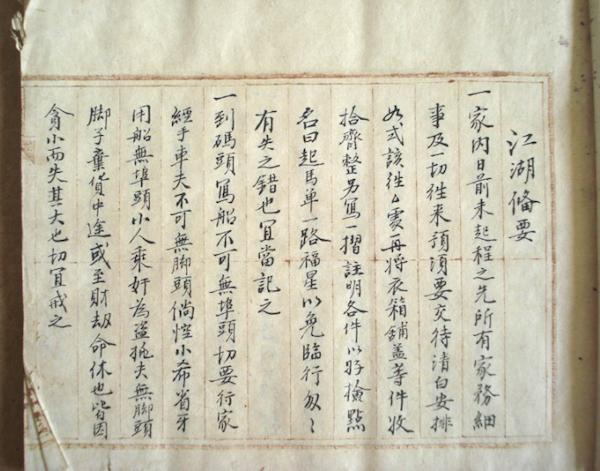 江湖備要
一家内日前未起程之先所有家務細
事及一切往来預須要交待清白安排
如式該往厶處再將衣箱舖蓋等件收
拾齊整另寫一摺註明各件以好撿點
名曰起馬单一路福星以免臨行匆〻
有失之錯也宜當記之
一到碼頭寫船不可無埠頭切要行家
經手車夫不可無脚頭倘惜小希省牙
用船無埠頭小人乘奸為盗拠夫無脚頭
脚子棄貨中途或至財劫命休也皆因
貪小而失其大也切宜戒之